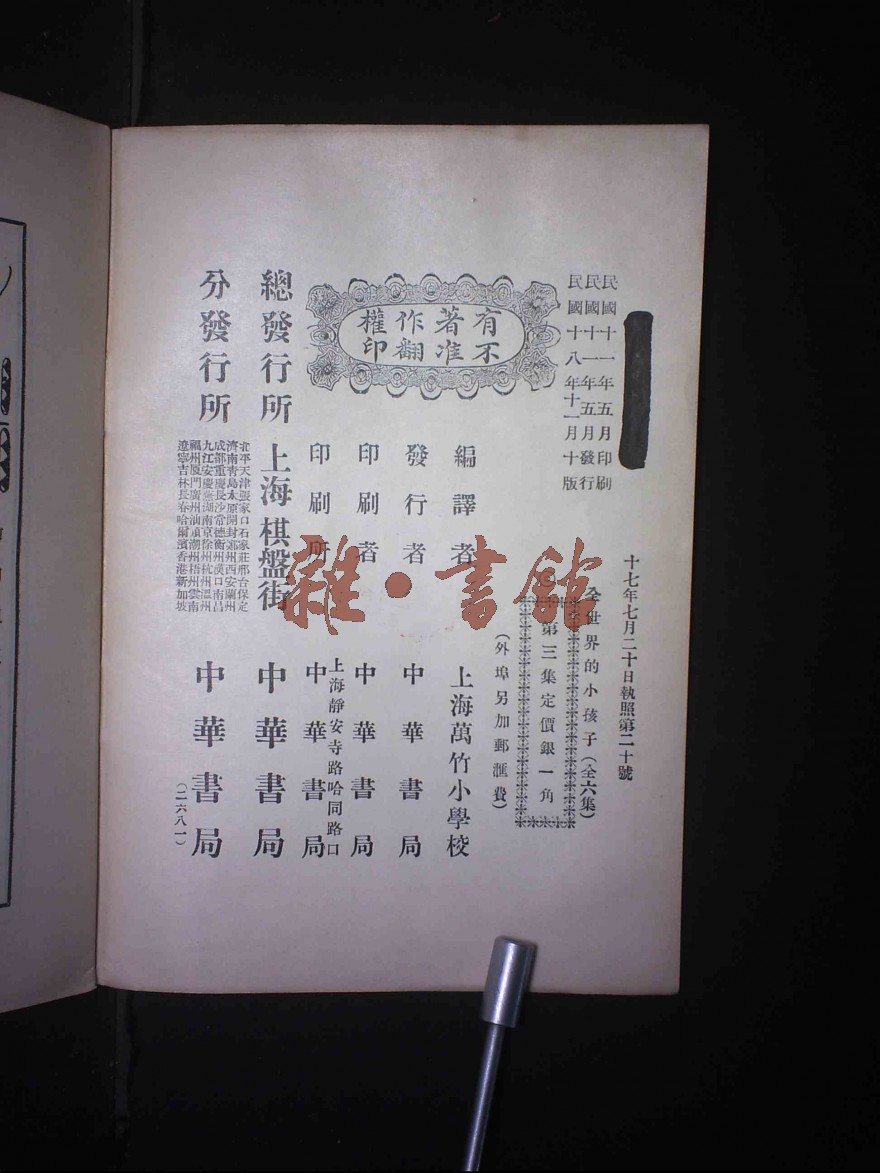 民國十一年五月印刷
民國十一年五月發行
民國十八年十一月十版
十七年七月二十日執照第二十號
全世界的小孩子（全六集）
第三集定價銀一角
（外埠另加郵滙費）
有著作權
不准翻印
編譯者 上海萬竹小學校
發行者 中華書局
印刷者 中華書局
印刷所 上海靜安寺路哈同路口 中華書局
總發行所 上海棋盤街 中華書局
分發行所 中華書局
北平天津張家口石家莊邢台保定
濟南青島太原開封鄭州西安蘭州
成都重慶長沙常德衡州漢口南昌
九江安慶蕪湖南京徐州杭州溫州
福州廈門廣州汕頭潮州梧州雲南
遼寧吉林長春哈爾濱香港新加坡
（二六八一）
雜·書館